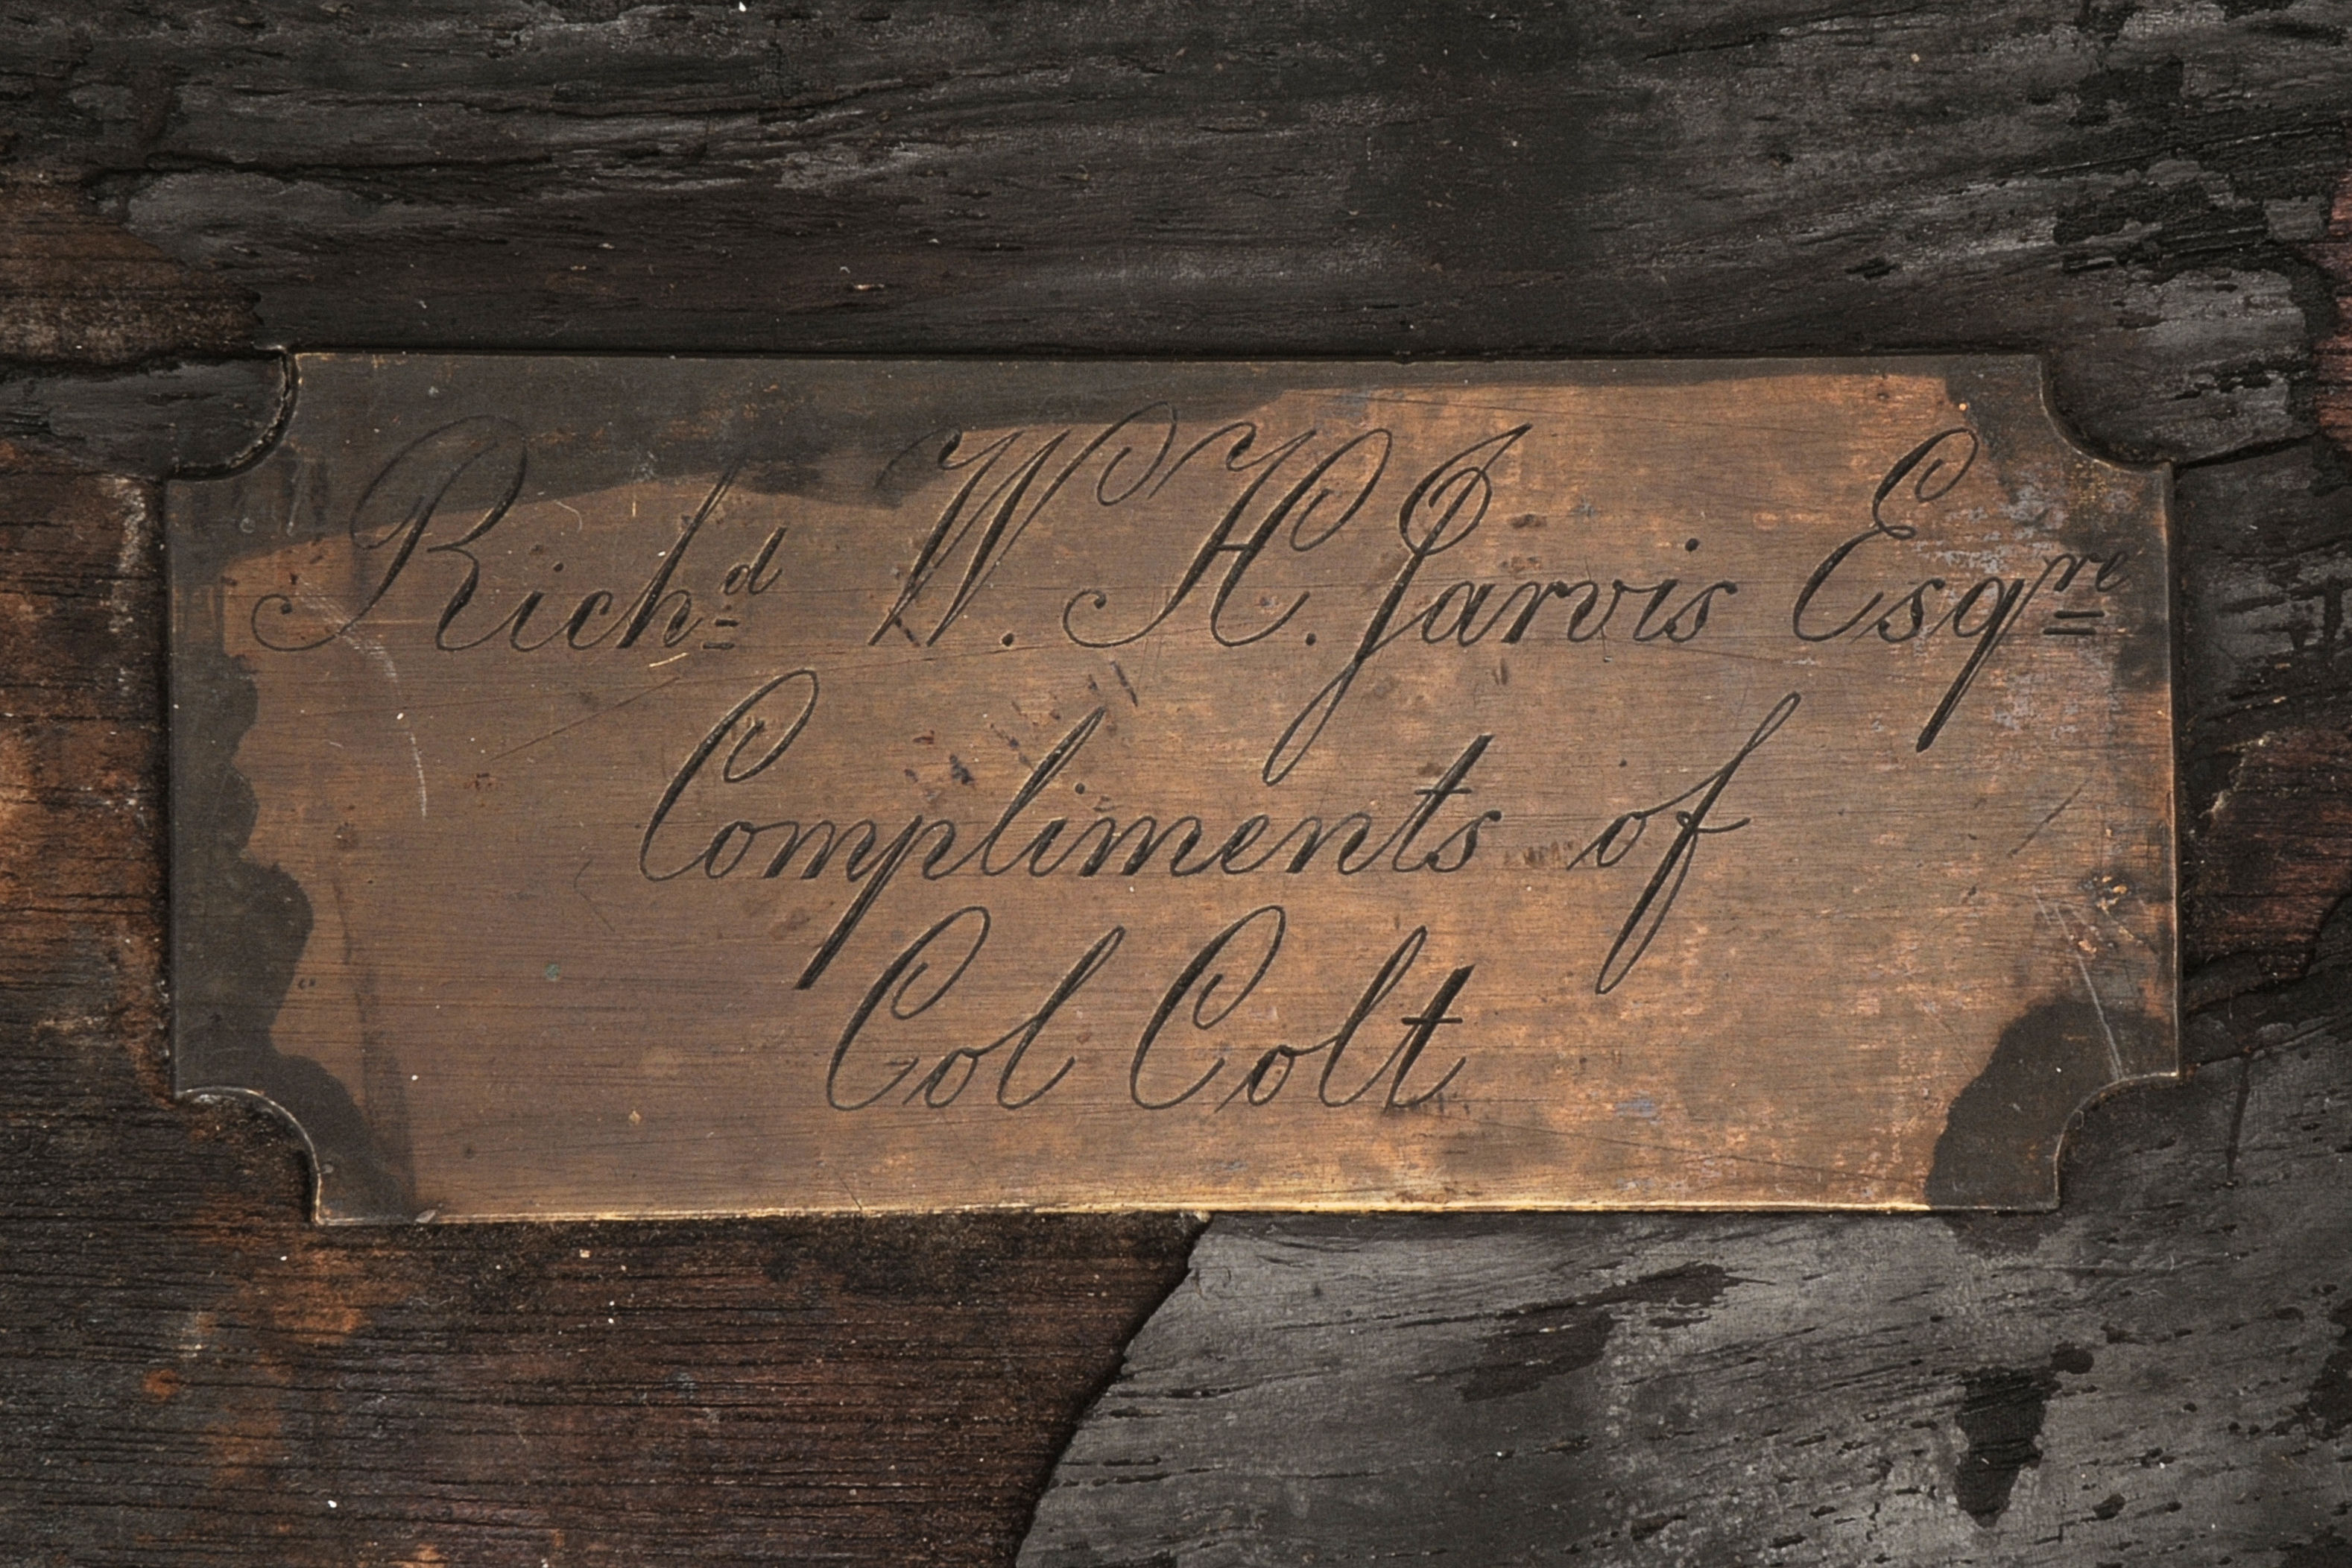 Richᵈ W. H. Jarvis Esqʳᵉ
Compliments of
Col Colt